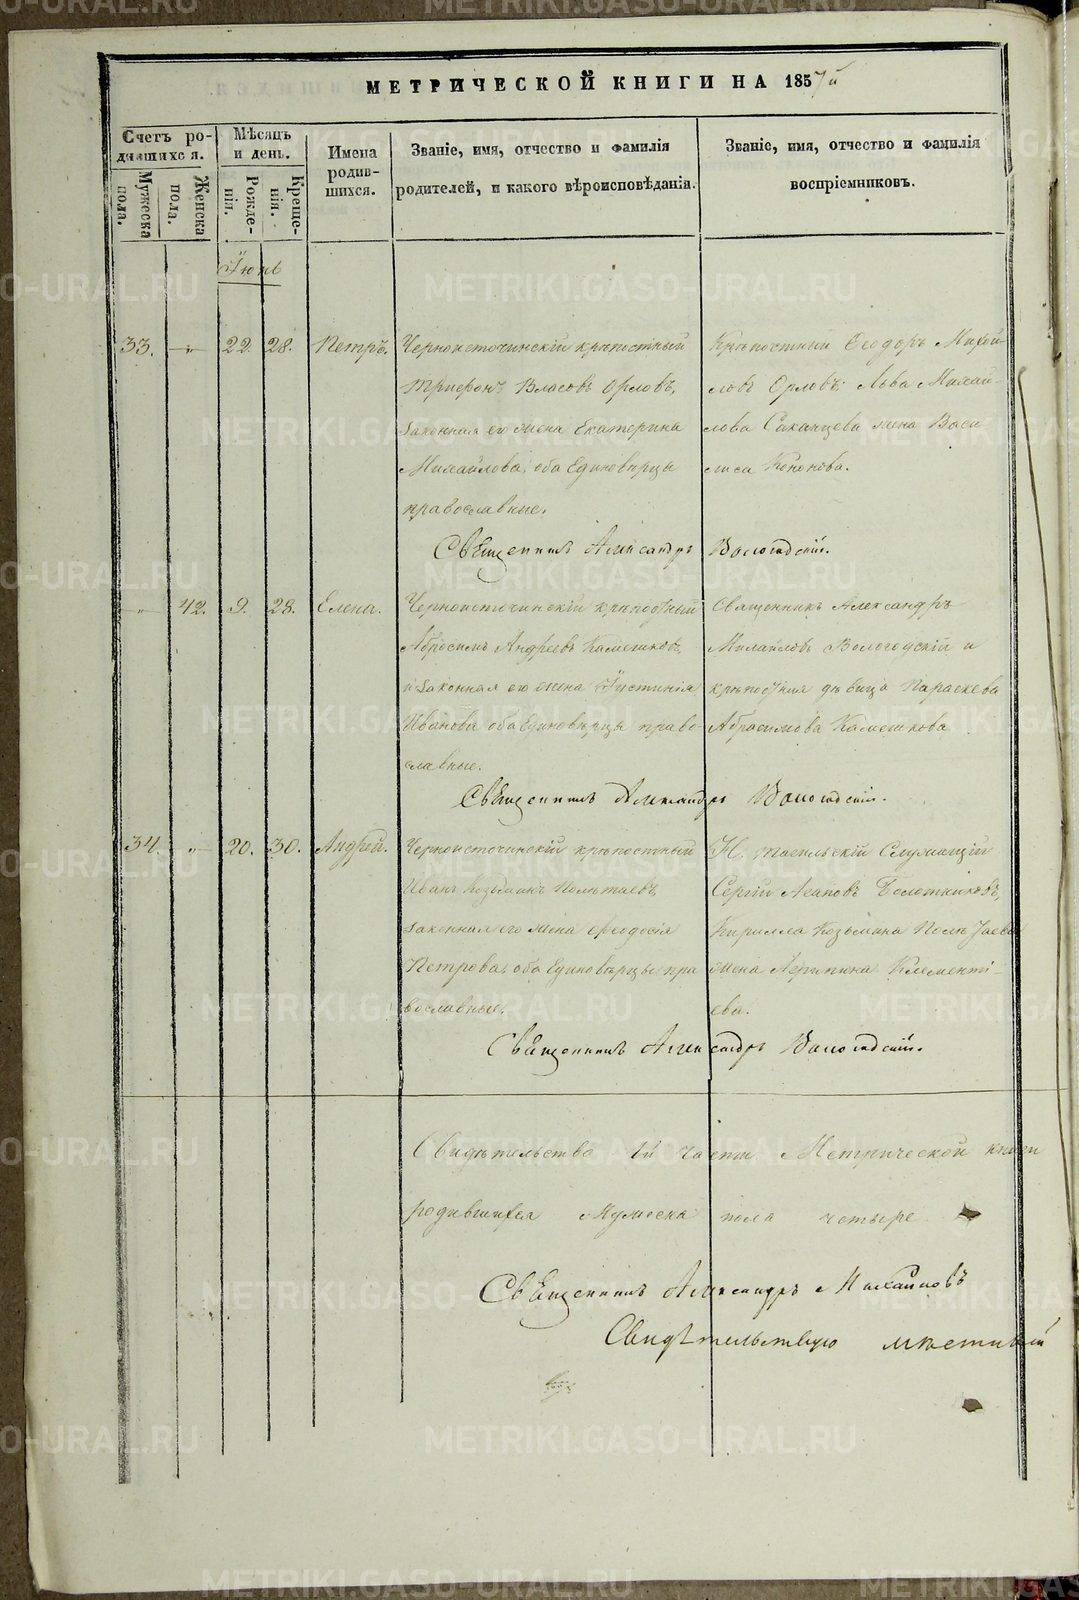 МЕТРИЧЕСКОЙ КНИГИ НА 1857й
Счетъ ро-
дившихся.
Мужеска
пола.
Женска
пола.
Мѣсяцъ
и день.
Рожде-
нія.
Креще-
нія.
Имена
родив-
шихся.
Званіе, имя, отчество и фамилія
родителей, и какого вѣроисповѣданія.
Званіе, имя, отчество и фамилія
воспріемниковъ.
Іюнь
33. „ 22. 28. Петръ.
Черноисточинскій крѣпостный
Трифонъ Власовъ Орловъ,
законная его жена Екатерина
Михайлова, оба Единовѣрцы
православные.
Крѣпостный Ѳеодоръ Михай-
ловъ Орловъ. Льва Михай-
лова жена Васи
лиса Кононова.
Священникъ Александръ Вологодскій.
„ 42. 9. 28. Елена.
Черноисточинскій крѣпостный
Абросимъ Андреевъ
и законная его жена Іустинія
Иванова оба Единовѣрцы право
славные.
Священникъ Александръ
Михайловъ Вологодскій и
крѣпостная дѣвица Параскева
Абросимова
Священникъ Александръ Вологодскій.
34 „ 20. 30. Андрей.
Черноисточинскій крѣпостный
Иванъ Козьминъ Полѣтаевъ,
законная его жена Ѳеодосія
Петрова, оба Единовѣрцы пра
вославные.
Н. тагильскій Служащій
Сергій Агаповъ Болотниковъ,
Кирилла Козьмина Полѣтаева
жена Агрипина Клементі-
ева.
Священникъ Александръ Вологодскій.
Свидѣтельство 1й части Метрической книги
родившихся Мужеска пола четыре
Священникъ Александръ Михайловъ
Свидѣтельствую мѣстный
METRIKI.GASO-URAL.RU